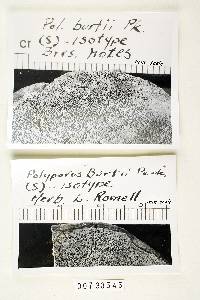 Pol. burtii Pk.
(S)-Isotype
Bres. Notes
Polyporus Burtii Peck,
(S)-isotype
Herb. L. Romell